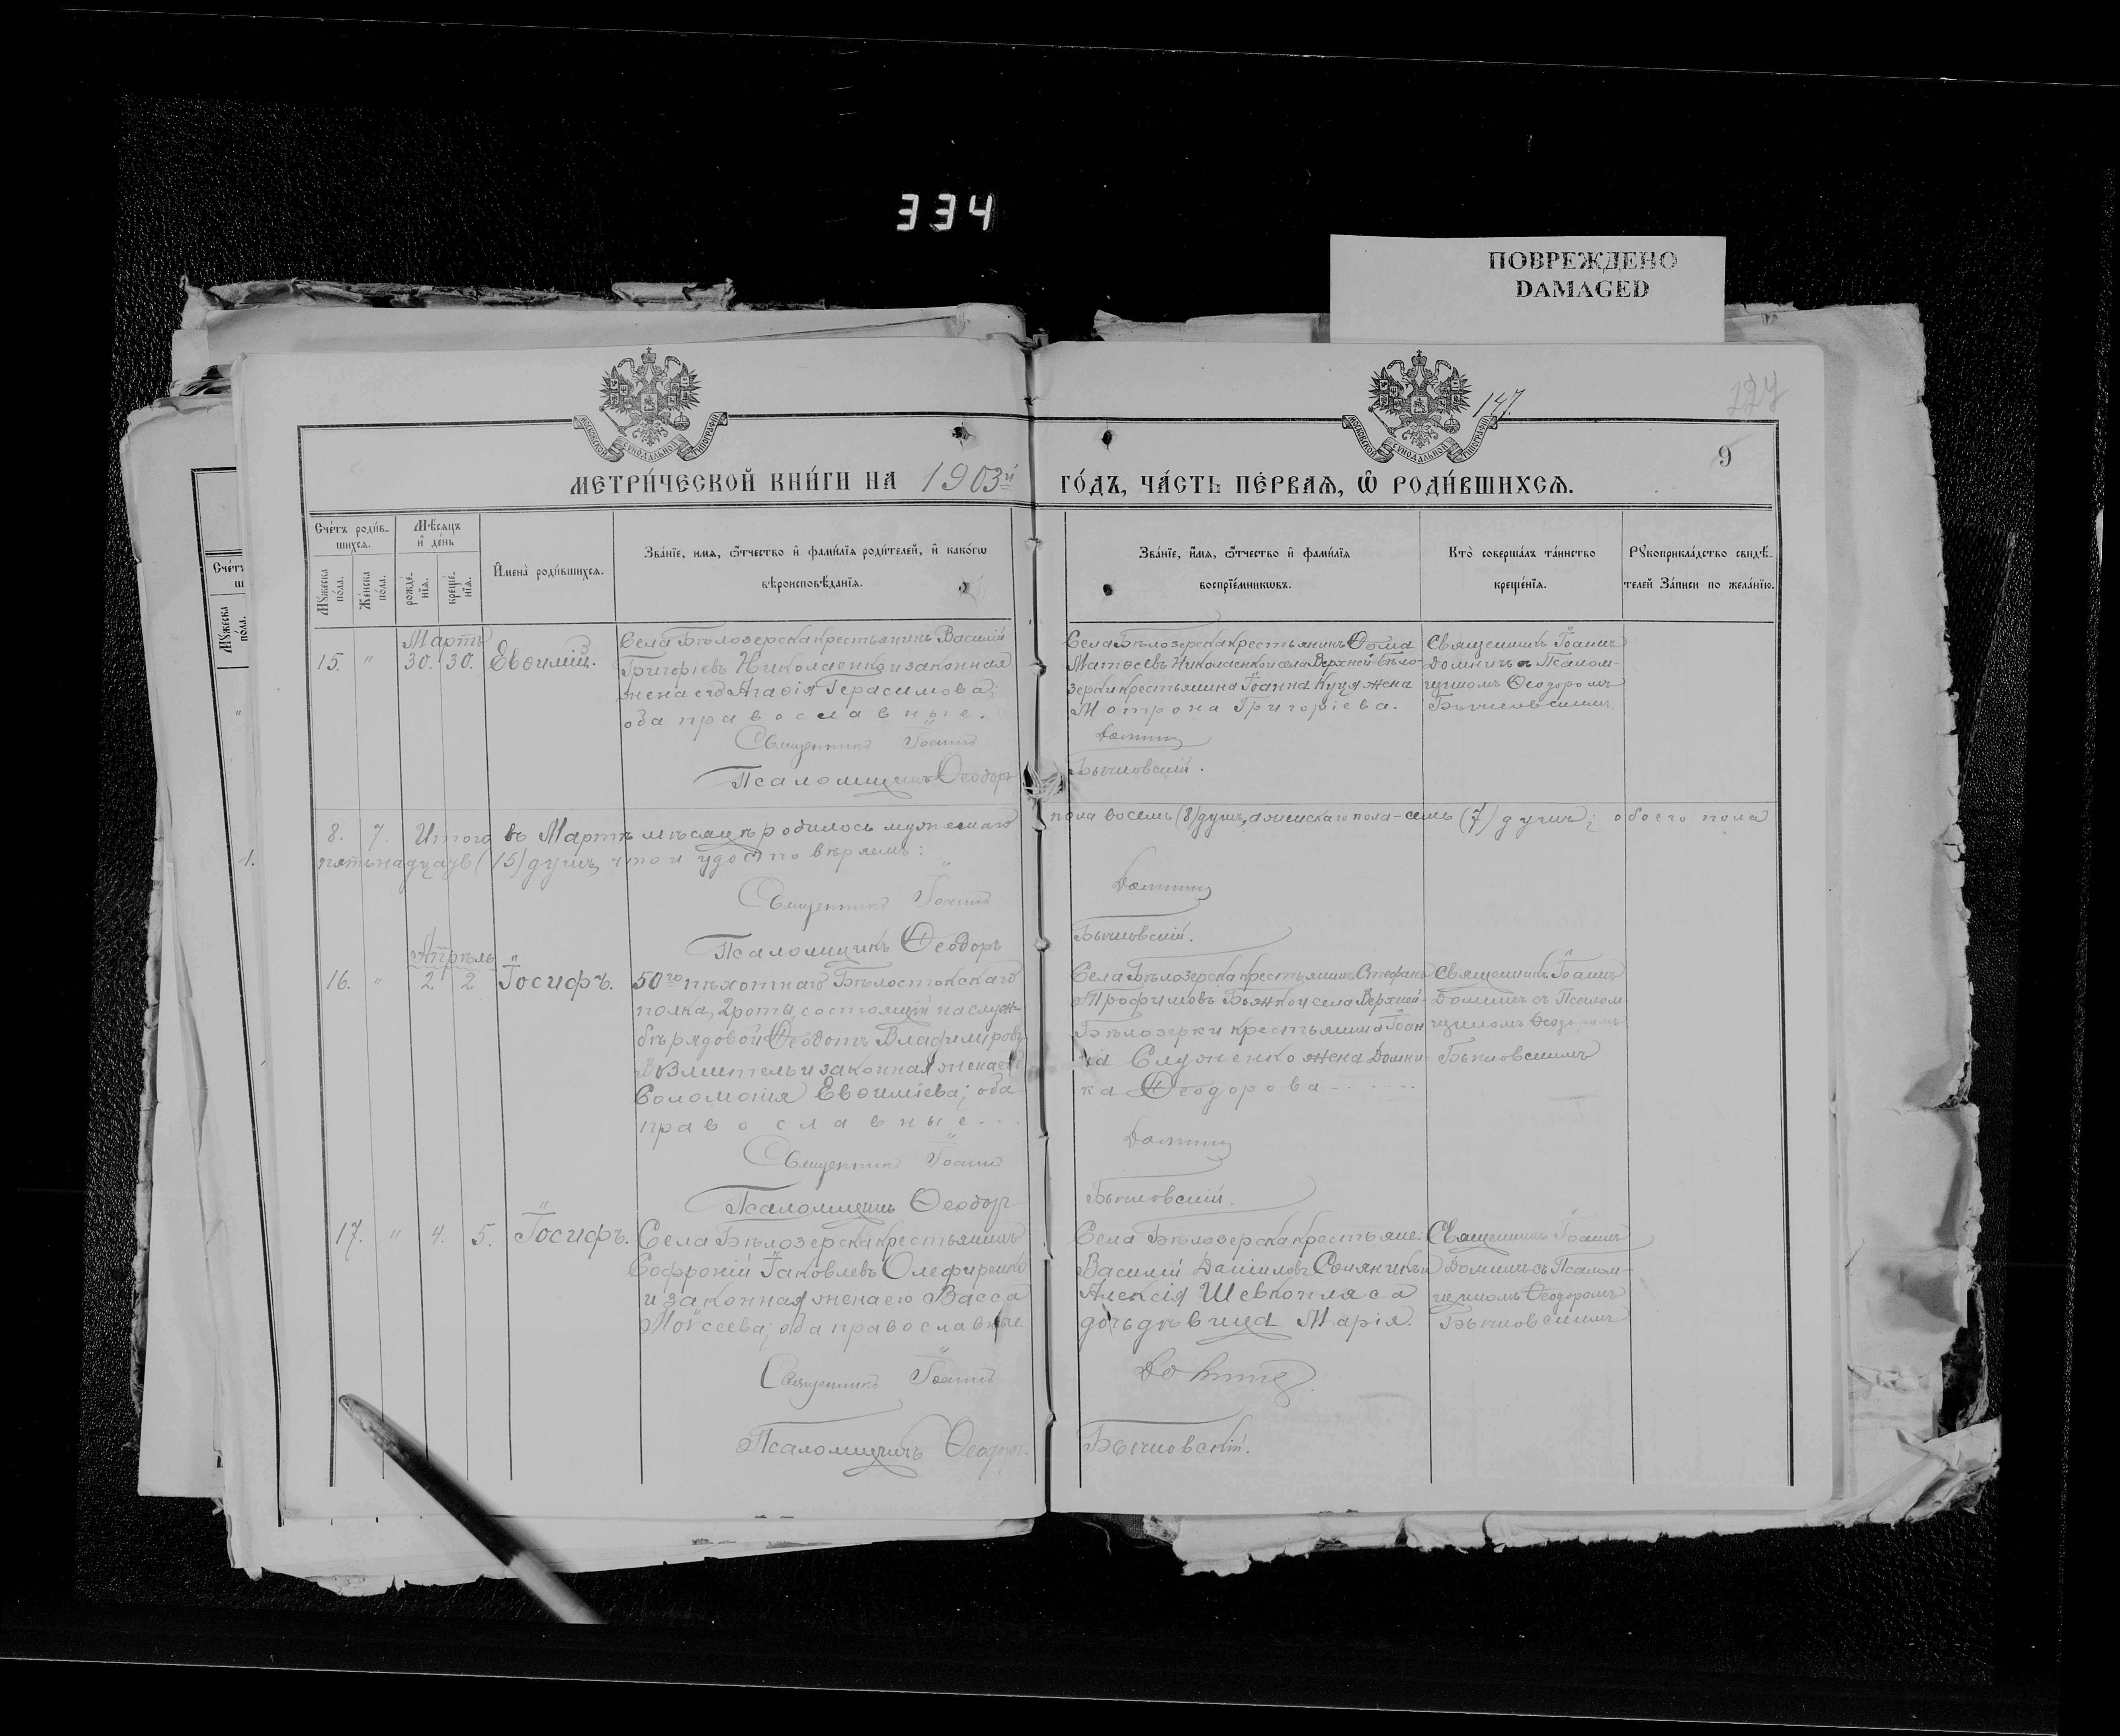 334
ПОВРЕЖДЕНО
DAMAGED
147.
9
МОСКОВСКОЙ СѴНОДАЛЬНОЙ ТИПОГРАФІИ
МОСКОВСКОЙ СѴНОДАЛЬНОЙ ТИПОГРАФІИ
МЕТРИ́ЧЕСКОЙ КНИ́ГИ НА 1903й ГО́ДЪ, ЧА́СТЬ ПЕ́РВАѦ, Ѡ РОДИ́ВШИХСѦ.
Сче́тъ роди́в-
шихсѧ.
Мѣ́сѧцъ
и҆ де́нь
Мꙋжеска
пола.
Же́нска
по́ла.
рожде́-
нїѧ.
креще́-
нїѧ.
И҆мена̀ роди́вшихсѧ.
Зва́нїе, имѧ, ѻ҆́тчество и҆ фами́лїѧ роди́телей, и҆ како́гѡ
вѣроисповѣ́данїѧ.
Зва́нїе, и҆́мѧ, ѻ҆́тчество и҆ фами́лїѧ
воспрїе́мникѡвъ.
Кто̀ соверша́лъ та́инство
креще́нїѧ.
Рꙋкоприкла́дство свидѣ́-
телей За́писи по жела́нїю.
Мартъ
15. " 30. 30. Евѳимій.
Села Бѣлозерска крестьянинъ Василій
Григоріевъ Николаенко и законная
жена его Агаѳія Герасимова;
оба православные.
Священникъ Іоаннъ
Псаломщикъ Ѳеодоръ
Села Бѣлозерска крестьянинъ Ѳома
Матѳеевъ Николаенко и села Верхней-Бѣло-
зерки крестьянина Іоанна Куця жена
Мотрона Григоріева.
Бычковскій.
Священникъ Іоаннъ
Псалом-
щикомъ Ѳеодоромъ
Бычковскимъ.
8. 7. Итого въ Мартѣ мѣсяцѣ родилось мужескаго пола восемь (8) душъ, а женскаго пола - семь (7) душъ; обоего пола
пятьнадцать (15) душъ, что и удостовѣряемъ:
Священникъ Іоаннъ
Псаломщикъ Ѳеодоръ
Бычковскій.
Апрѣль
16. " 2 2 Іосифъ.
50го пѣхотнаго Бѣлостокскаго
полка, 2 роты, состоящій на служ-
бѣ рядовой Ѳеодотъ Владиміровъ
и законная жена его
Соломонія Евѳиміева; оба
православные...
Священникъ Іоаннъ
Псаломщикъ Ѳеодоръ
Села Бѣлозерска крестьянинъ Стефанъ
Трофимовъ и села Верхней-
Бѣлозерки крестьянина Іоан
на Служенко жена Домни-
ка Ѳеодорова
Бычковскій.
Священникъ Іоаннъ
съ Псалом-
щикомъ Ѳеодоромъ
Бычковскимъ
17. " 4. 5. Іосифъ.
Села Бѣлозерска крестьянинъ
Софроній Іаковлевъ Олефиренко
и законная жена его Васса
Моѵсеева; оба православные
Священникъ Іоаннъ
Псаломщикъ Ѳеодоръ
Села Бѣлозерска крестьяне:
Василій Даніиловъ
Алексія Шевкопляса
дочь дѣвица Марія.
Бычковскій.
Священникъ Іоаннъ
съ Псалом-
щикомъ Ѳеодоромъ
Бычковскимъ